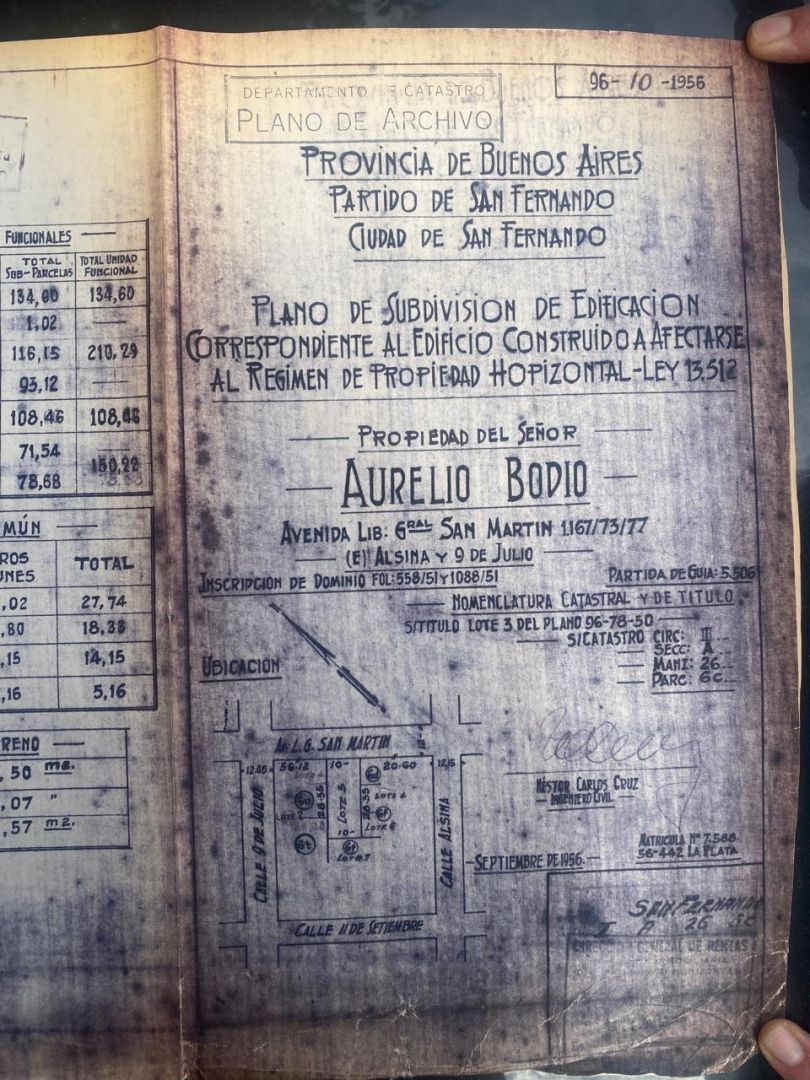 96-10-1956
DEPARTAMENTO DE CATASTRO
PLANO DE ARCHIVO
PROVINCIA DE BUENOS AIRES
PARTIDO DE SAN FERNANDO
CIUDAD DE SAN FERNANDO
PLANO DE SUBDIVISION DE EDIFICACION
CORRESPONDIENTE AL EDIFICIO CONSTRUIDO A AFECTARSE
AL REGIMEN DE PROPIEDAD HOPIZONTAL-LEY 13.512
PROPIEDAD DEL SEÑOR
AURELIO BODIO
AVENIDA LIB: GRAL SAN MARTIN 1.167/73/77
(E) ALSINA Y 9 DE JULIO
INSCRIPCION DE DOMINIO FOL: 558/51 Y 1088/51
PARTIDA DE GUIA: 5.506
NOMENCLATURA CATASTRAL Y DE TITULO
S/TITULO LOTE 3 DEL PLANO 96-78-50
S/CATASTRO CIRC: III
SECC: A
MANZ: 26
PARC: 6c
UBICACION
AV. L. G. SAN MARTIN
12.08
56.12
10-
20.60
12.15
CALLE 9 DE JULIO
LOTE 2
28.35
LOTE 3
28.35
LOTE 4
LOTE 6
10-
LOTE 7
CALLE ALSINA
CALLE 11 DE SETIEMBRE
NÉSTOR CARLOS CRUZ
INGENIERO CIVIL
MATRICULA Nº 7.588
56-442 LA PLATA
SEPTIEMBRE DE 1956.
SAN FERNANDO
I A 26 3C
GENERAL DE RENTAS
FUNCIONALES
TOTAL SBB-PARCELAS
TOTAL UNIDAD FUNCIONAL
134,60 134,60
1,02
116,15 210,29
93,12
108,46 108,46
71,54
150,22
78,68
MÚN
TOTAL
,02 27,74
,80 18,33
,15 14,15
,16 5,16
RENO
,50 m2.
,07 "
,57 m2.